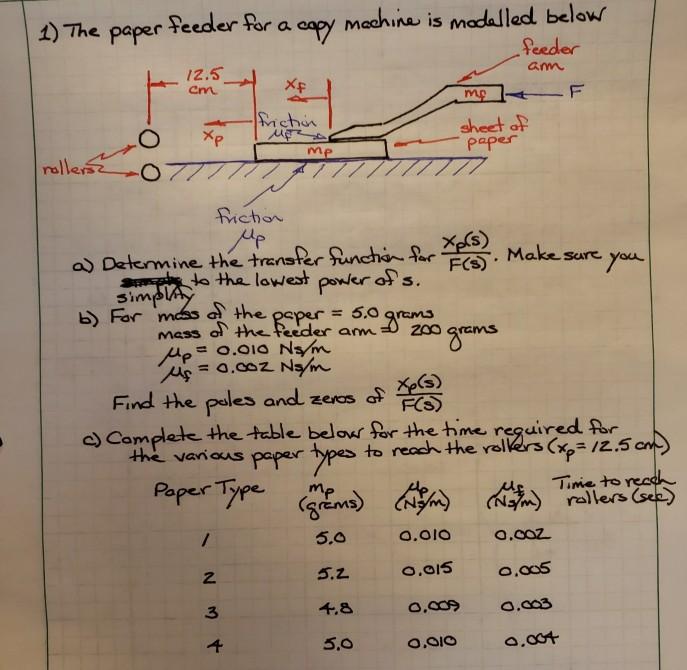 1) The paper feeder for a copy machine is modelled below
feeder
arm
12.5
cm
xf
mf
F
friction
μf
xp
sheet of
paper
mp
rollers
friction
μp
a) Determine the transfer function for Xp(s)/F(s). Make sure you
simplify to the lowest power of s.
b) For mass of the paper = 5.0 grams
mass of the feeder arm = 200 grams
μp = 0.010 Ns/m
μf = 0.002 Ns/m
Find the poles and zeros of Xp(s)/F(s)
c) Complete the table below for the time required for
the various paper types to reach the rollers (xp = 12.5 cm)
Paper Type mp (grams) μp (Ns/m) μf (Ns/m) Time to reach rollers (sec)
1 5.0 0.010 0.002
2 5.2 0.015 0.005
3 4.8 0.009 0.003
4 5.0 0.010 0.004